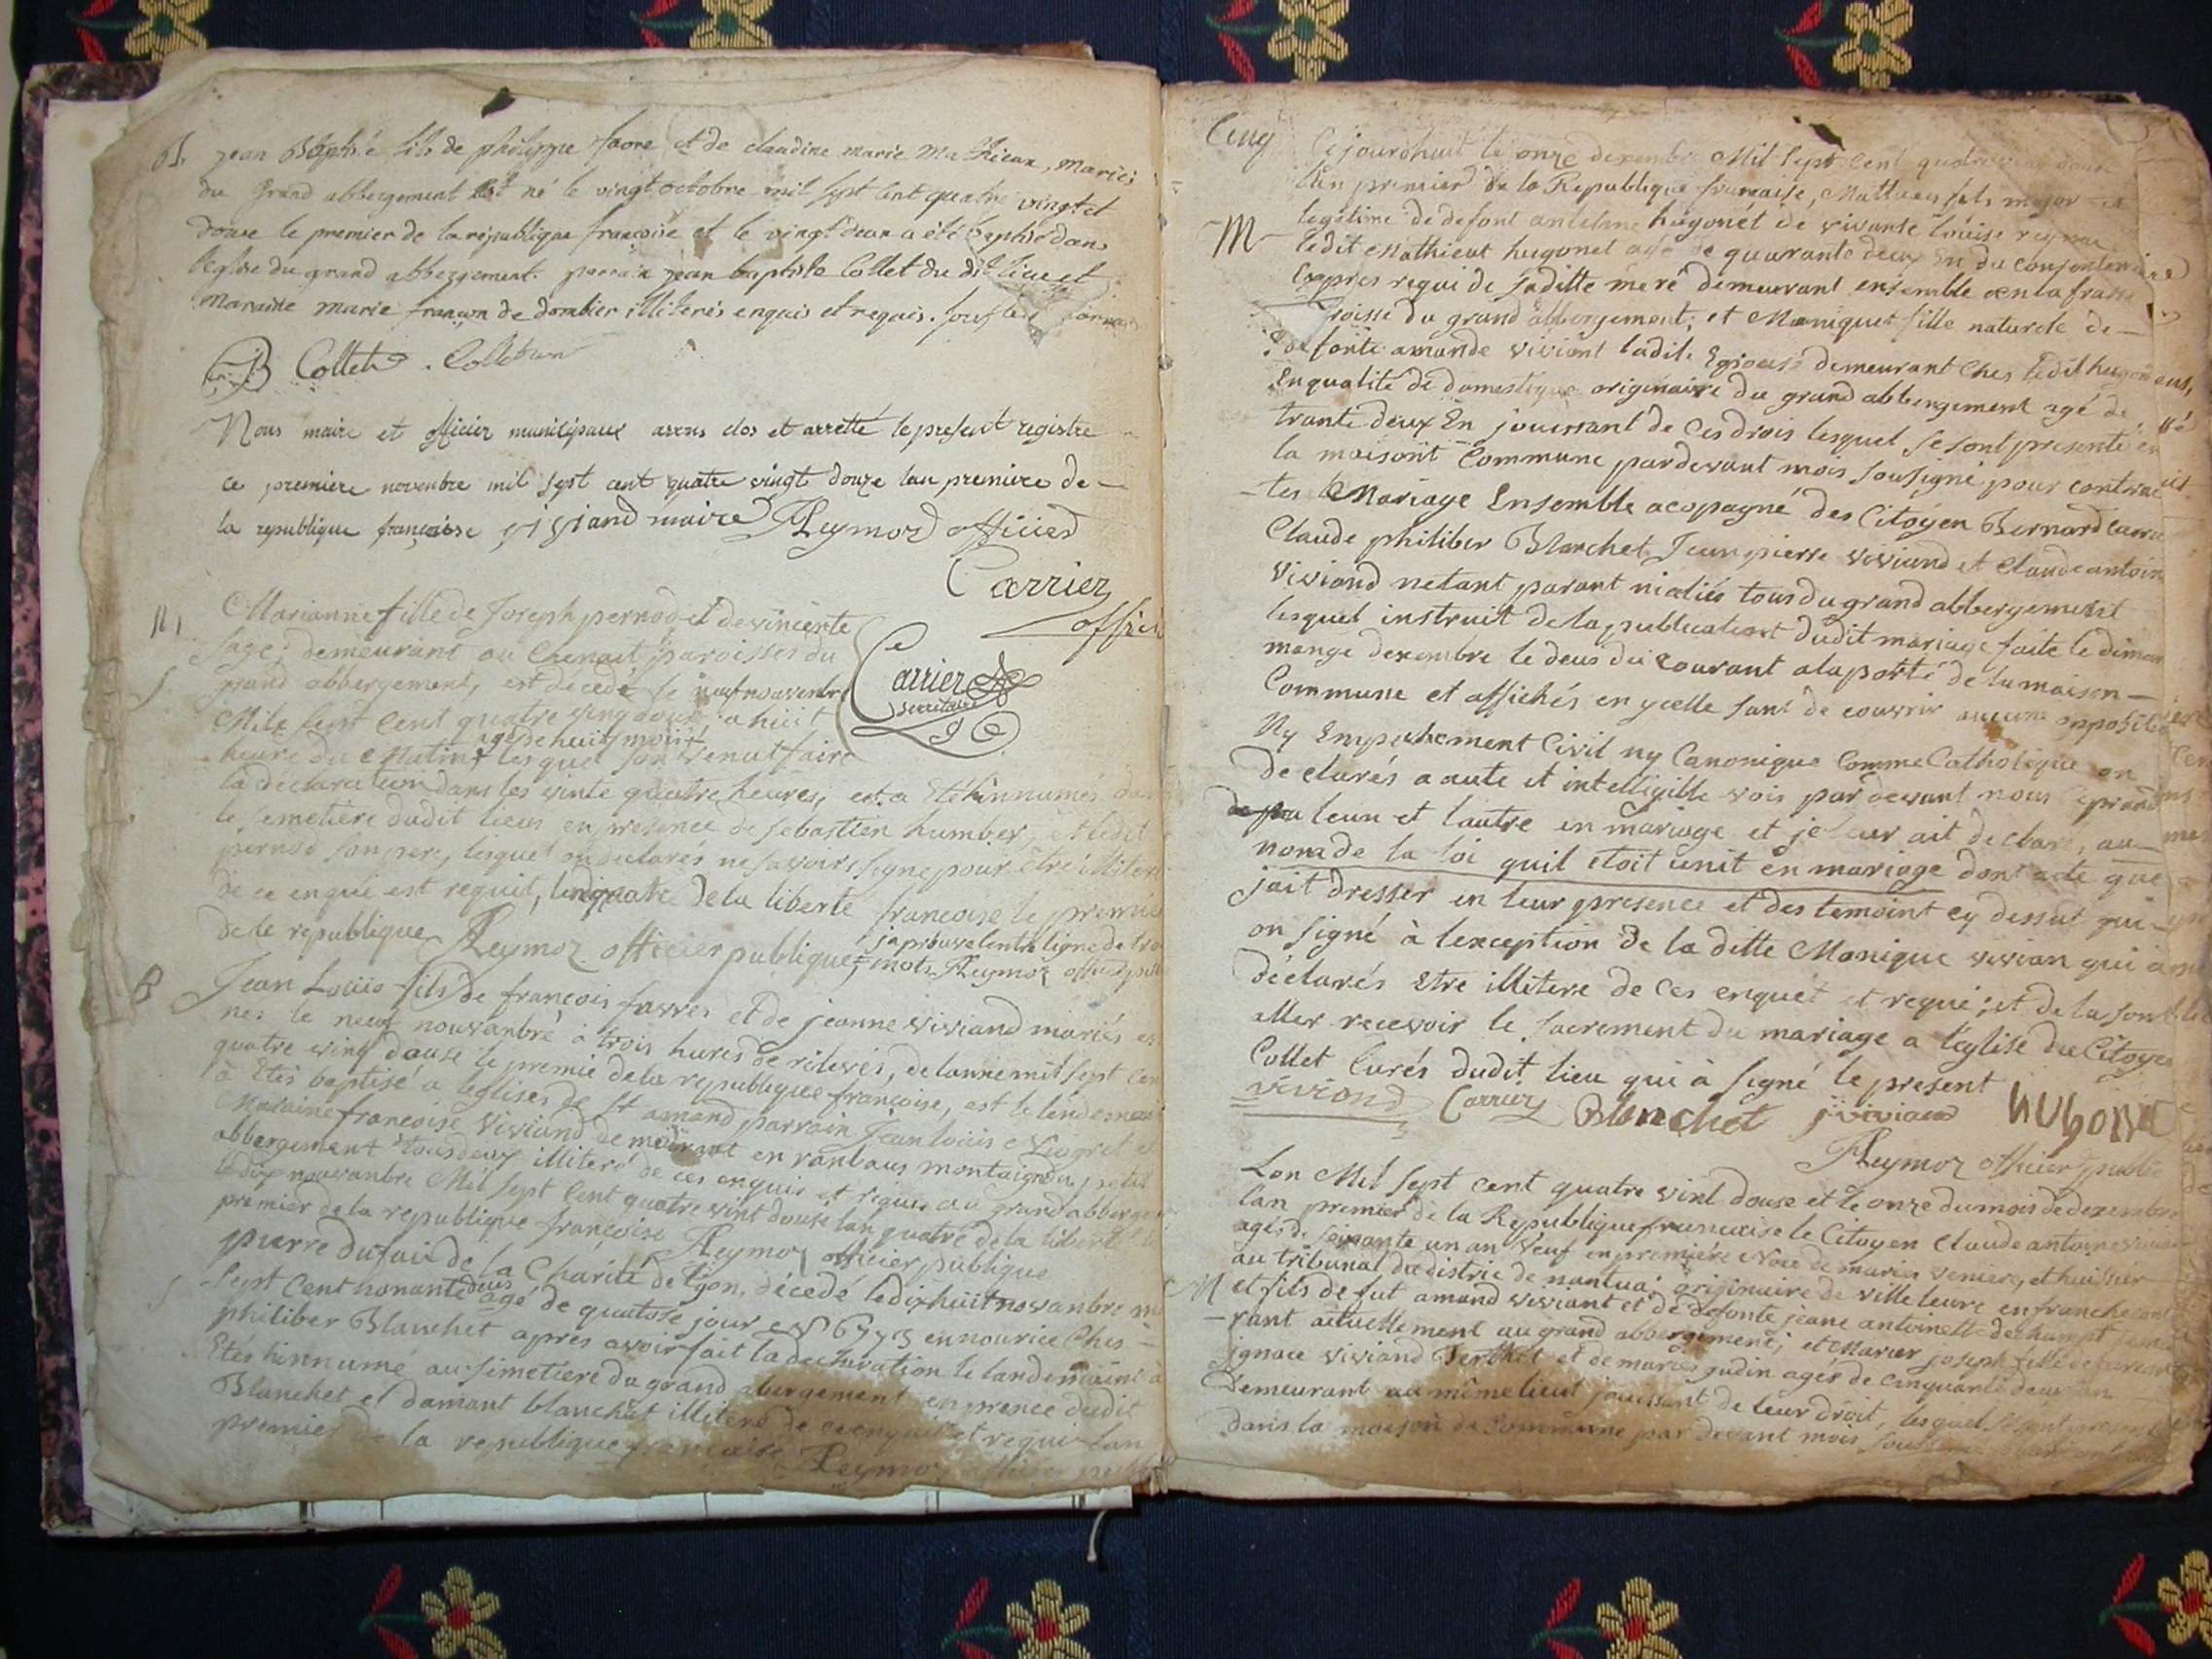 B jean Baptiste fils de philippe favre et de claudine marie Mathieux, mariés
du grand abbergement est né le vingt octobre mil sept cent quatre vingt et
douze le premier de la république françoise et le vingt deux a été baptisé dans
l'eglise du grand abbergement. parrain jean baptiste Collet du dit lieu et
maraine marie françon de dombier illiterés enquis et requis.
Collet
Nous maire et officier municipaux avons clos et arretté le present registre
ce premiere novembre mil sept cent quatre vingt douze lan premiere de
la republique françoise viviand maire Reymoz officier
Carrier
officier
Marianne fille de Joseph pernod et de vincente
sage; demeurant au Chenait paroisses du
grand abbergement, est décedé le neuf nouvembre
Mile sept Cent quatre ving douze a huit
agé de huit mois
heure du Matin lesquel son venut faire
Carrier
secretaire
la déclaration dans les vinte quatre heures, est a Eté hinnumés
le semetiere dudit lieus en presence de sebastien humber, et ledit
pernod son pere, lesquel on declarés ne savoir signe pour être illitere
de ce enquie est requit, lan quatre de la liberte francoise le premie
de le republique Reymoz officier publique,
japrouve lentre ligne de trois
mots Reymoz
B Jean Louiis fils de françois favres et de jeanne Viviand mariés
nes le neuf nouvanbre à trois hures de relevés, de lannemil sept cen
quatre ving douse le premie de la republique françoise, est le lendemain
à Etés baptisé a leglises de st amand parrain Jean louiis
Maraine francoise Viviand demeurant en ranbaus montaigne du petit
abbergement tous deux illiteré de ces enquis et requis au grand abberge
le dix nouvanbre Mil sept Cent quatre vint douse lan quatre de la liberté
premier de la republique françoise Reymoz officier publique
S pierre dufai de la Charité de lyon, décedé le dix huit novanbre
sept Cent nonante deus agé de quatose jour N° 6773 en nourice Ches
philiber Blanchet apres avoir fait la declaration le landemaint
Etés hinnumé au simetiere du grand abergement en presence dudit
Blanchet et damant blanchet illiteré de ce enquit et requi lan
premier de la republique francaise Reymoz
Cinq Cejourdhuit le onze dexembre Mil sept Cent quatre
lan premier de la Republique francaise, Matthieu fils major
M legitime de defont antelme hugonet et de vivante louise
ledit Mathieut hugonet agé de quarante deux En du
Exprès requi de saditte meré demeurant ensemble en la
roisse du grand abbergement; et Moniquet fille naturele de
defonte amande viviant ladite Epouse demeurant Ches ledit
Enqualité de domestique originaire du grand abbergement agé de
trante deux En jouissant de Ces drois lesquel se sont presenté en
la maisont Commune pardevant mois sousigné pour contrac
ter Mariage Ensemble acopagné des Citoyen Bernard Carrie
Claude philiber Blanchet Jean pierre viviand et Claude antoin
Viviand netant parant ni aliés tous du grand abbergement
lesquel instruit de la publicationt dudit mariage faite le diman
mange dexembre le deus du courant ala porte de la maison
Commune et affichés en ycelle sant de couvrir aucune oppositi
Ny Empechement Civil ny Canonique Comme Catholique on
declarés a aute et intelligille vois pardevant nous
leun et lautre en mariage et je leur ait declaré, au
nom de la loi quil etoit unit en mariage dont acte que
jait dresser en leur presence et des temoint cy dessut qui
on signé à lexception de la ditte Monique vivian qui à
déclarés Etre illitere de Ces enquet et requi; et de la sont
aller recevoir le sacrement du mariage a leglise du Citoyen
Collet Curés dudit lieu qui à signé le present
viviond Carrier Blanchet jp viviand HUGONE
Reymoz officier public
Lan Mil sept Cent quatre vint douse et le onze du mois de dexembre
lan premier de la Republique francaise le Citoyen Claude antoine
agés de soixante un an veuf en premiere Noce de maries veniere, et huissier
au tribunal du distric de nantua; originaire de villeleure en franche
M et fils de fut amand viviant et de defonte jeane antoinette dechampt
rant actuellement au grand abbergement; et Marier joseph fille de
ignace viviand et de maries gudin agés de Cinquante deux an
Demeurant au même lieut jouissant de leur droit, lesquel se sont
dans la maison de Commune par devant mois